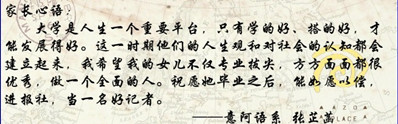 家长心语：
大学是人生一个重要平台，只有学的好、搭的好，才
能发展得好。这一时期他们的人生观和对社会的认知都会
建立起来，我希望我的女儿不仅专业拔尖，方方面面都很
优秀，做一个全面的人。祝愿她毕业之后，能如愿以偿，
进报社，当一名好记者。
——意阿语系 张芷菡